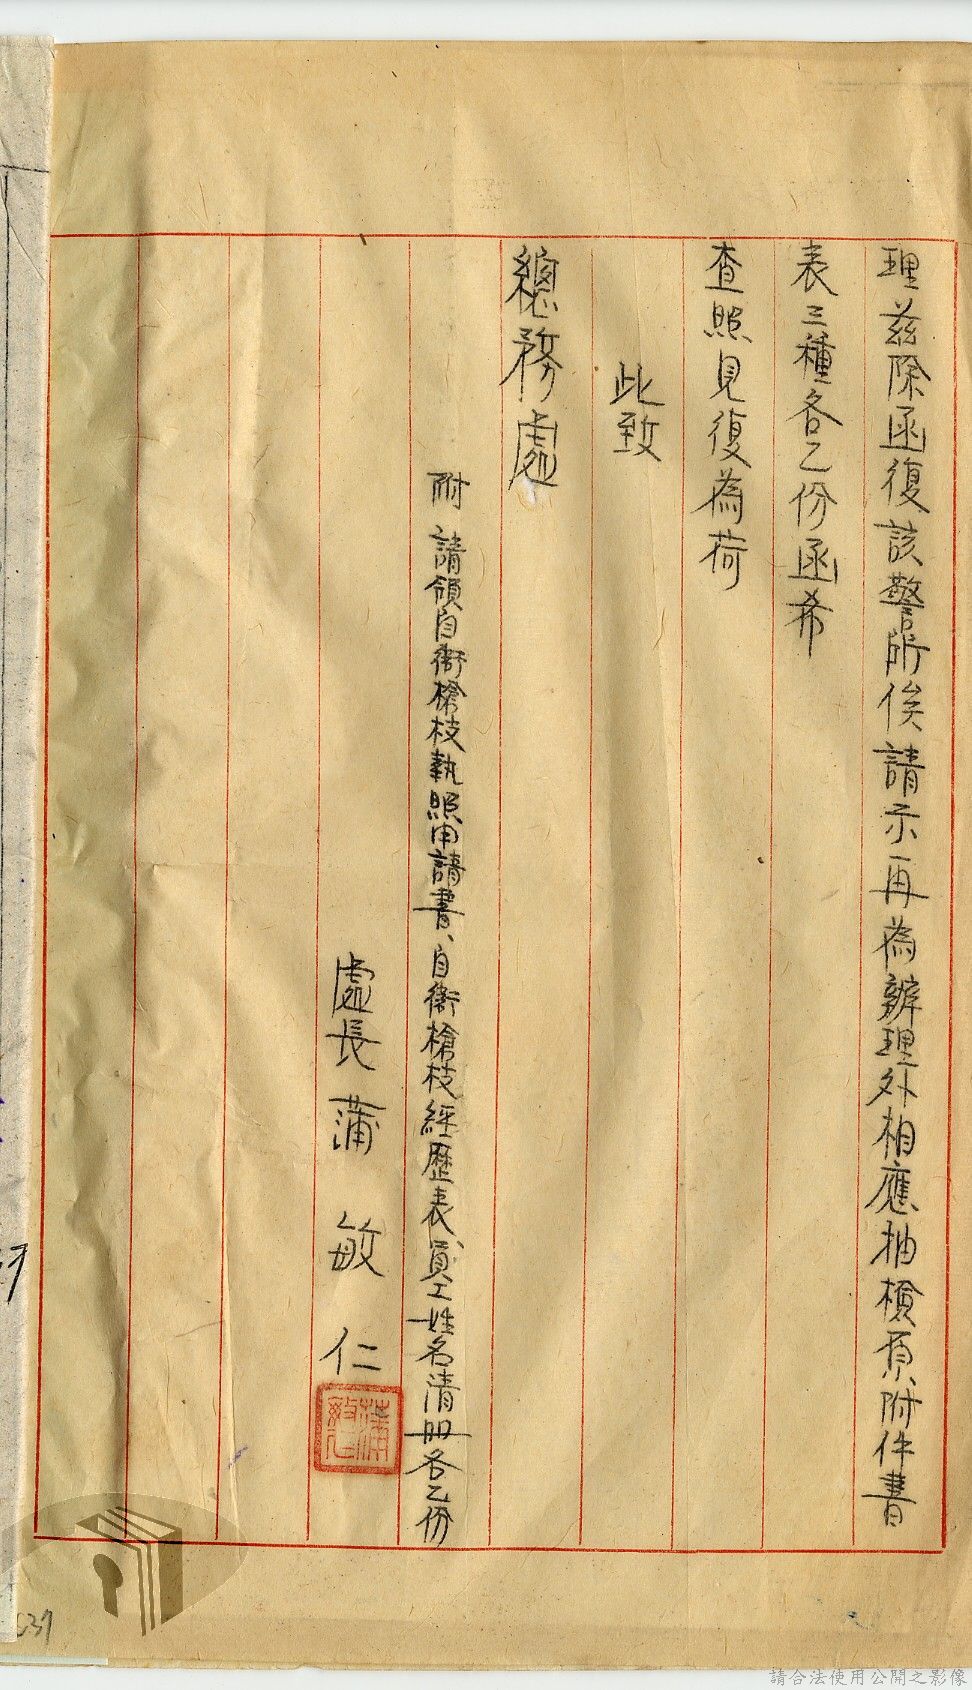 理茲除函復該警所俟請示再為辦理外相應抽檢原附件書
表三種各乙份函希
查照見復為荷
此致
總務處
附請領自衛槍枝執照申請書、自衛槍枝經歷表、員工姓名清册各乙份
處長蒲敏仁
蒲敏仁
請合法使用公開之影像